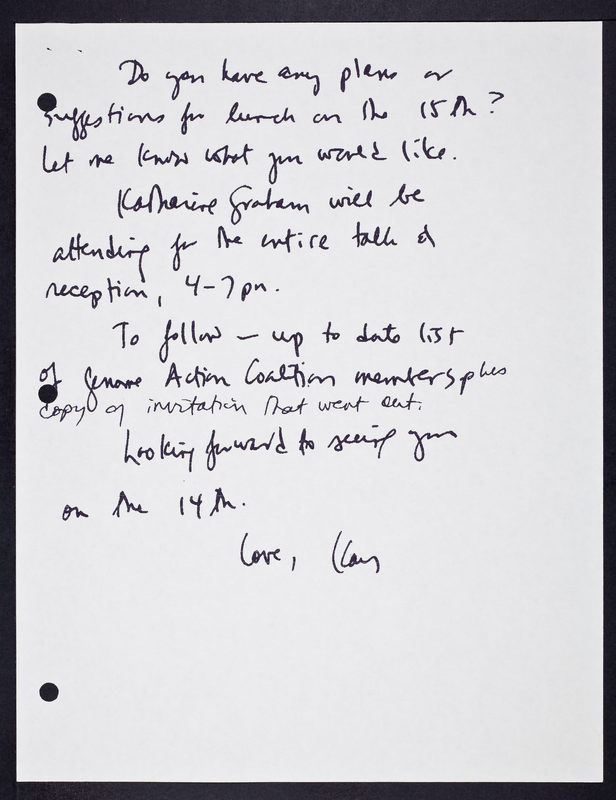 Do you have any plans or
suggestions for lunch on the 15th?
Let me know what you would like.
Katharine Graham will be
attending for the entire talk &
reception, 4-7 pm.
To follow – up to date list
of Genome Action Coalition members plus
copy of invitation that went out.
Looking forward to seeing you
on the 14th.
Love, Kay